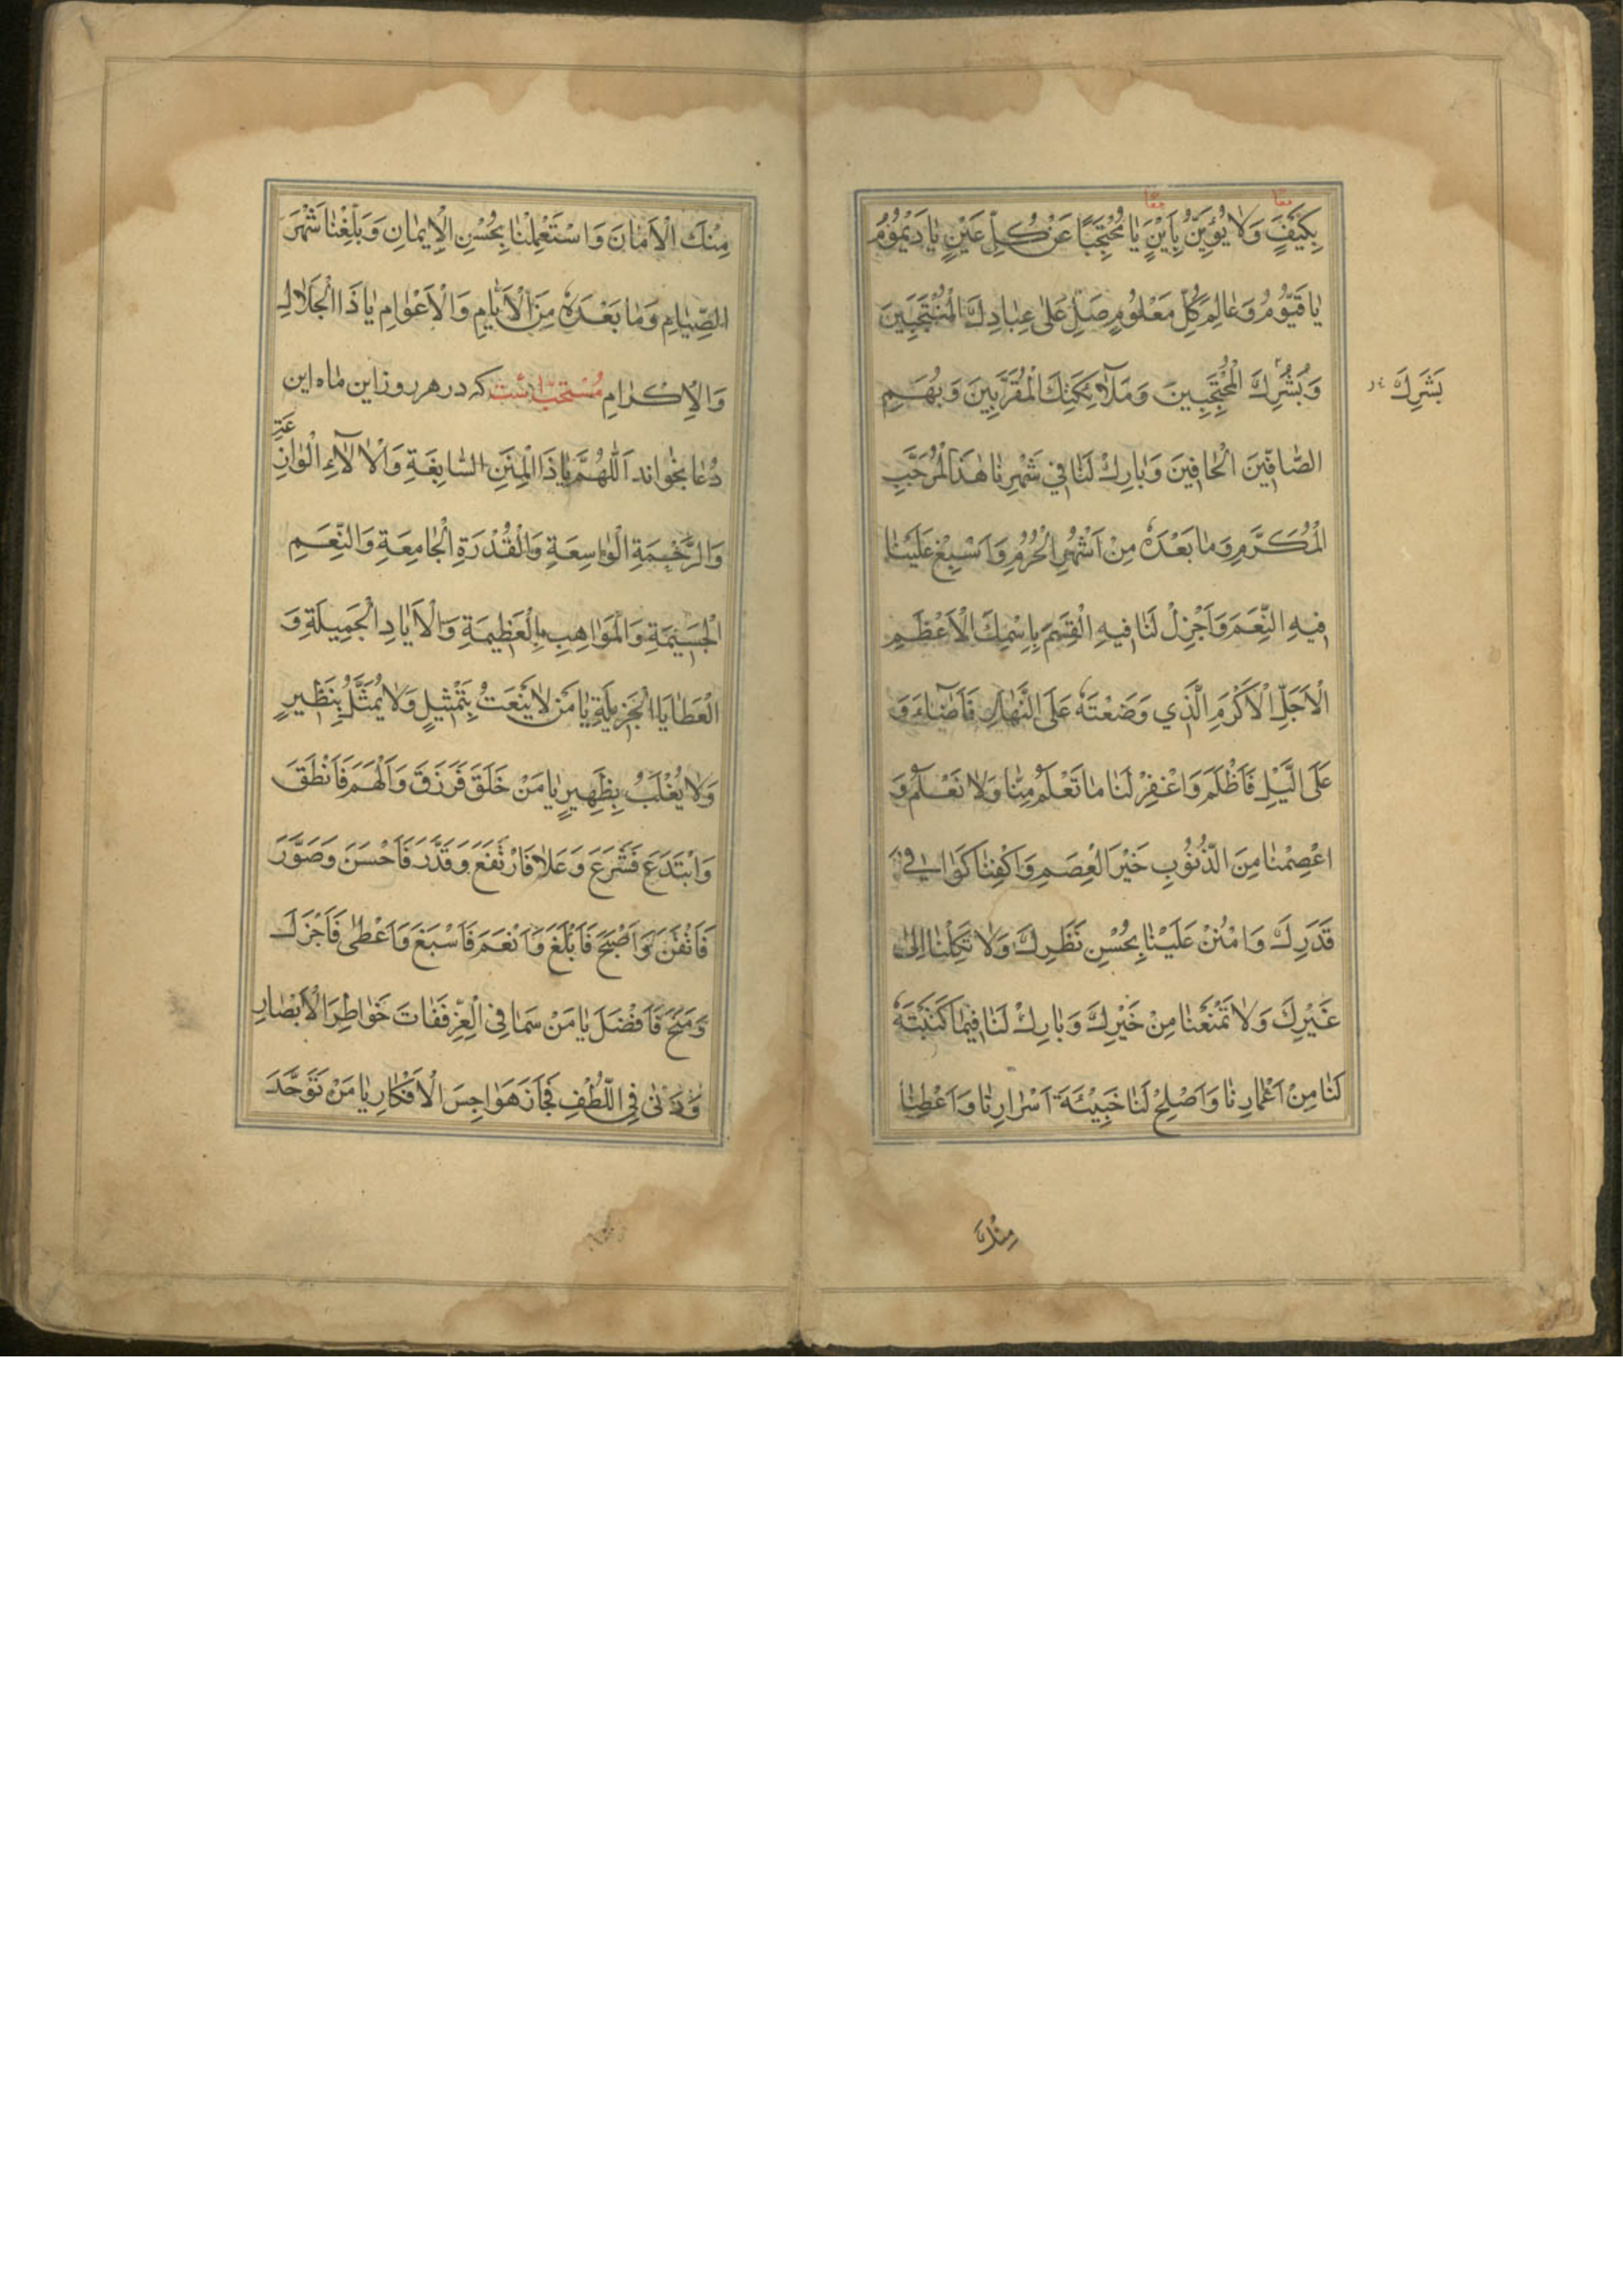 معًا
معًا
بِكَيْفٍ وَلَا يُؤَيَّنُ بِاَيْنٍ يَا مُحْتَجِبًا عَنْ كُلِّ عَيْنٍ يَا دَيْمُومُ
يَا قَيُّومُ وَعَالِمَ كُلِّ مَعْلُومٍ صَلِّ عَلَى عِبَادِكَ الْمُنْتَجَبِينَ
وَبُشْرِكَ الْمُحْتَجِبِينَ وَمَلَآئِكَتِكَ الْمُقَرَّبِينَ وَبُهَمِ
بَشَرِكَ
الصَّافِّينَ الْحَافِّينَ وَبَارِكْ لَنَا فِي شَهْرِنَا هٰذَا الْمُرَجَّبِ
الْمُكَرَّمِ وَمَا بَعْدَهُ مِنْ اَشْهُرِ الْحُرُمِ وَاَسْبِغْ عَلَيْنَا
فِيهِ النِّعَمَ وَاَجْزِلْ لَنَا فِيهِ الْقِسَمَ بِاِسْمِكَ الْاَعْظَمِ
الْاَجَلِّ الْاَكْرَمِ الَّذِي وَضَعْتَهُ عَلَى النَّهَارِ فَاَضَاءَ وَ
عَلَى الَّيْلِ فَاَظْلَمَ وَاغْفِرْ لَنَا مَا تَعْلَمُ مِنَّا وَلَا نَعْلَمُ وَ
اعْصِمْنَا مِنَ الذُّنُوبِ خَيْرَ الْعِصَمِ وَاكْفِنَا كَوَافِيَ
قَدَرِكَ وَامْنُنْ عَلَيْنَا بِحُسْنِ نَظَرِكَ وَلَا تَكِلْنَا اِلَى
غَيْرِكَ وَلَا تَمْنَعْنَا مِنْ خَيْرِكَ وَبَارِكْ لَنَا فِيمَا كَتَبْتَهُ
لَنَا مِنْ اَعْمَارِنَا وَاَصْلِحْ لَنَا خَبِيئَةَ اَسْرَارِنَا وَاَعْطِنَا
مِنْكَ
مِنْكَ الْاَمَانَ وَاسْتَعْمِلْنَا بِحُسْنِ الْاِيمَانِ وَبَلِّغْنَا شَهْرَ
الصِّيَامِ وَمَا بَعْدَهُ مِنَ الْاَيَّامِ وَالْاَعْوَامِ يَا ذَا الْجَلَالِ
وَالْاِكْرَامِ مُسْتَحَبّ است كه در هر روز اين ماه اين
دُعا بخواند اَللّٰهُمَّ يَا ذَا الْمِنَنِ السَّابِغَةِ وَالْاٰلَاءِ الْوَازِ
عَةِ
وَالرَّحْمَةِ الْوَاسِعَةِ وَالْقُدْرَةِ الْجَامِعَةِ وَالنِّعَمِ
الْجَسِيمَةِ وَالْمَوَاهِبِ الْعَظِيمَةِ وَالْاَيَادِ الْجَمِيلَةِ وَ
الْعَطَايَا الْجَزِيلَةِ يَا مَنْ لَا يُنْعَتُ بِتَمْثِيلٍ وَلَا يُمَثَّلُ بِنَظِيرٍ
وَلَا يُغْلَبُ بِظَهِيرٍ يَا مَنْ خَلَقَ فَرَزَقَ وَاَلْهَمَ فَاَنْطَقَ
وَابْتَدَعَ فَشَرَعَ وَعَلَا فَارْتَفَعَ وَقَدَّرَ فَاَحْسَنَ وَصَوَّرَ
فَاَتْقَنَ وَاَصْبَحَ فَاَبْلَغَ وَاَنْعَمَ فَاَسْبَغَ وَاَعْطَى فَاَجْزَلَ
وَمَنَحَ فَاَفْضَلَ يَا مَنْ سَمَا فِي الْعِزِّ فَفَاتَ خَوَاطِرَ الْاَبْصَارِ
وَدَنَى فِي اللُّطْفِ فَجَازَ هَوَاجِسَ الْاَفْكَارِ يَا مَنْ تَوَحَّدَ